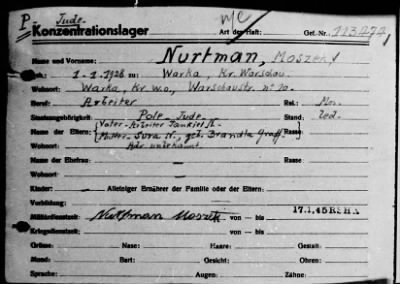 P. Jude.
Konzentrationslager Art der Haft: Gef. Nr.:
Name und Vorname: Nurtman, Moszek
geb.: 1.1.1926 zu: Warka, Kr. Warschau.
Wohnort: Warka, Kr. w.o., Warschaustr. nº 10.
Beruf: Arbeiter Rel.: Mos.
Staatsangehörigkeit: Pole - Jude Stand: led.
Name der Eltern: Vater - Arbeiter Jankiel N. Rasse:
Mutter - Sura N., geb. Brandla Graff.
Wohnort: Adr. unbekannt.
Name der Ehefrau: — Rasse:
Wohnort: —
Kinder: — Alleiniger Ernährer der Familie oder der Eltern:
Vorbildung:
Militärdienstzeit: Nurtman Moszek von — bis 17.1.45 RSHA
Kriegsdienstzeit: von — bis
Grösse: Nase: Haare: Gestalt:
Mund: Bart: Gesicht: Ohren:
Sprache: Augen: Zähne: